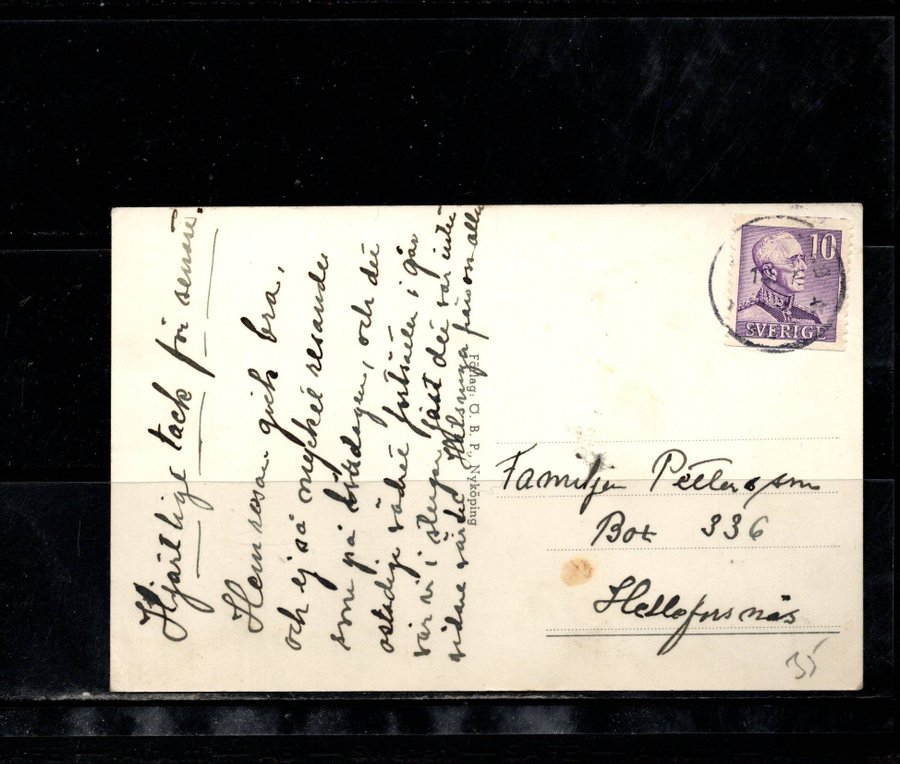 Hjärtligt tack för senast.
Hemresan gick bra,
och ej så mycket resande
som på lördagen, och det
ostadiga vädret fortsätter i går
var vi i stugan fast det var inte
vidare värdé Hälsningar från oss alla
Förlag: O. B. P., Nyköping
10
SVERIGE
Familjen Petterson
Box 336
Hälleforsnäs
35